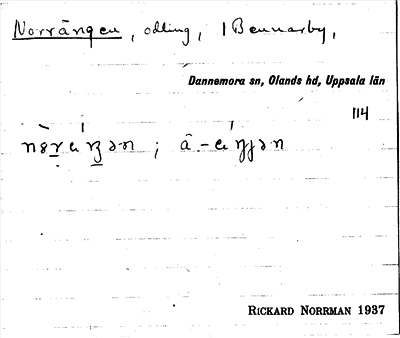 Norrängen, odling, 1 Bennarby,
Dannemora sn, Olands hd, Uppsala län
114
RICKARD NORRMAN 1937